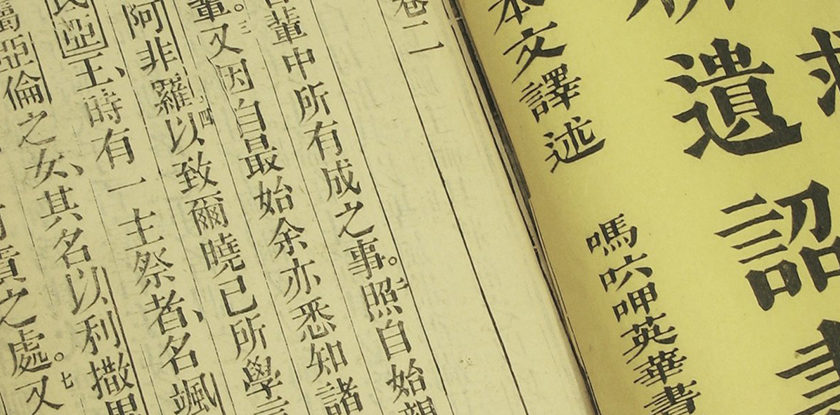 救
新遺詔書
本文譯述
嗎六呷英華書
卷二
輩中所有成之事。二照自始親
輩。三又因自最始余亦悉知諸
阿非羅四以致爾曉已所學言
氏亞王、時有一主祭者、名颯
屬亞倫之女、其名以利撒
責之處。七又